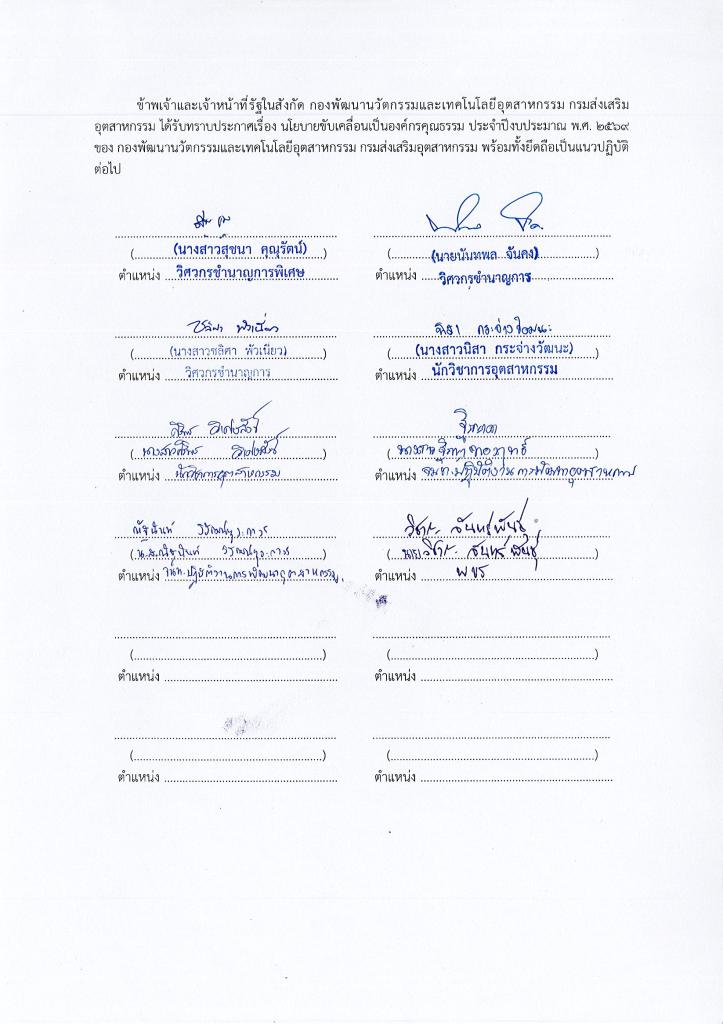 ข้าพเจ้าและเจ้าหน้าที่รัฐในสังกัด กองพัฒนานวัตกรรมและเทคโนโลยีอุตสาหกรรม กรมส่งเสริม
อุตสาหกรรม ได้รับทราบประกาศเรื่อง นโยบายขับเคลื่อนเป็นองค์กรคุณธรรม ประจำปีงบประมาณ พ.ศ. ๒๕๖๙
ของ กองพัฒนานวัตกรรมและเทคโนโลยีอุตสาหกรรม กรมส่งเสริมอุตสาหกรรม พร้อมทั้งยึดถือเป็นแนวปฏิบัติ
ต่อไป
(นางสาวสุชนา คุณุรัตน์)
ตำแหน่ง วิศวกรชำนาญการพิเศษ
(นายนันทพล จันคง)
ตำแหน่ง วิศวกรชำนาญการ
ชลิศา พัวเนียว
(นางสาวชลิศา พัวเนียว)
ตำแหน่ง วิศวกรชำนาญการ
นิสา กระจ่างวัฒนะ
(นางสาวนิสา กระจ่างวัฒนะ)
ตำแหน่ง นักวิชาการอุตสาหกรรม
(นางสาว
ตำแหน่ง นักวิชาการอุตสาหกรรม
(นางสาว
ตำแหน่ง จนท.ปฏิบัติงานการพัฒนาอุตสาหกรรม
(น.ส.
ตำแหน่ง จนท.ปฏิบัติงานการพัฒนาอุตสาหกรรม
จันทร์พันธุ์
(นาย จันทร์พันธุ์
ตำแหน่ง พขร
(
)
ตำแหน่ง
(
)
ตำแหน่ง
(
)
ตำแหน่ง
(
)
ตำแหน่ง